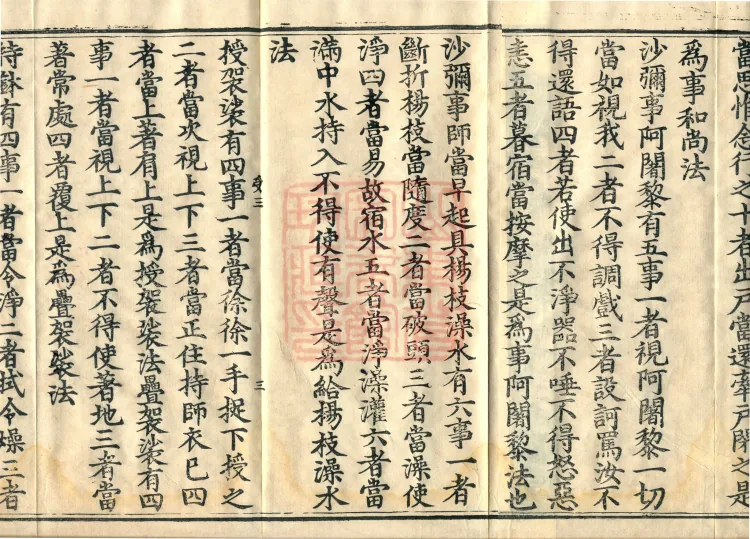 當思惟念行之十者出戶當還牽戶閉之是
為事和尚法
沙彌事阿闍黎有五事一者視阿闍黎一切
當如視我二者不得調戲三者設訶罵汝不
得還語四者若使出不淨器不唾不得怒惡
恚五者暮宿當按摩之是為事阿闍黎法也
沙彌事師當早起具楊枝澡水有六事一者
斷折楊枝當隨度二者當破頭三者當澡使
淨四者當易故宿水五者當淨澡灌六者當
滿中水持入不得使有聲是為給楊枝澡水
法
受三 三
授袈裟有四事一者當徐徐一手捉下授之
二者當次視上下三者當正住持師衣已四
者當上著肩上是為授袈裟法疊袈裟有四
事一者當視上下二者不得使著地三者當
著常處四者覆上是為疊袈裟法
持鉢有四事一者當令淨二者拭令燥三者